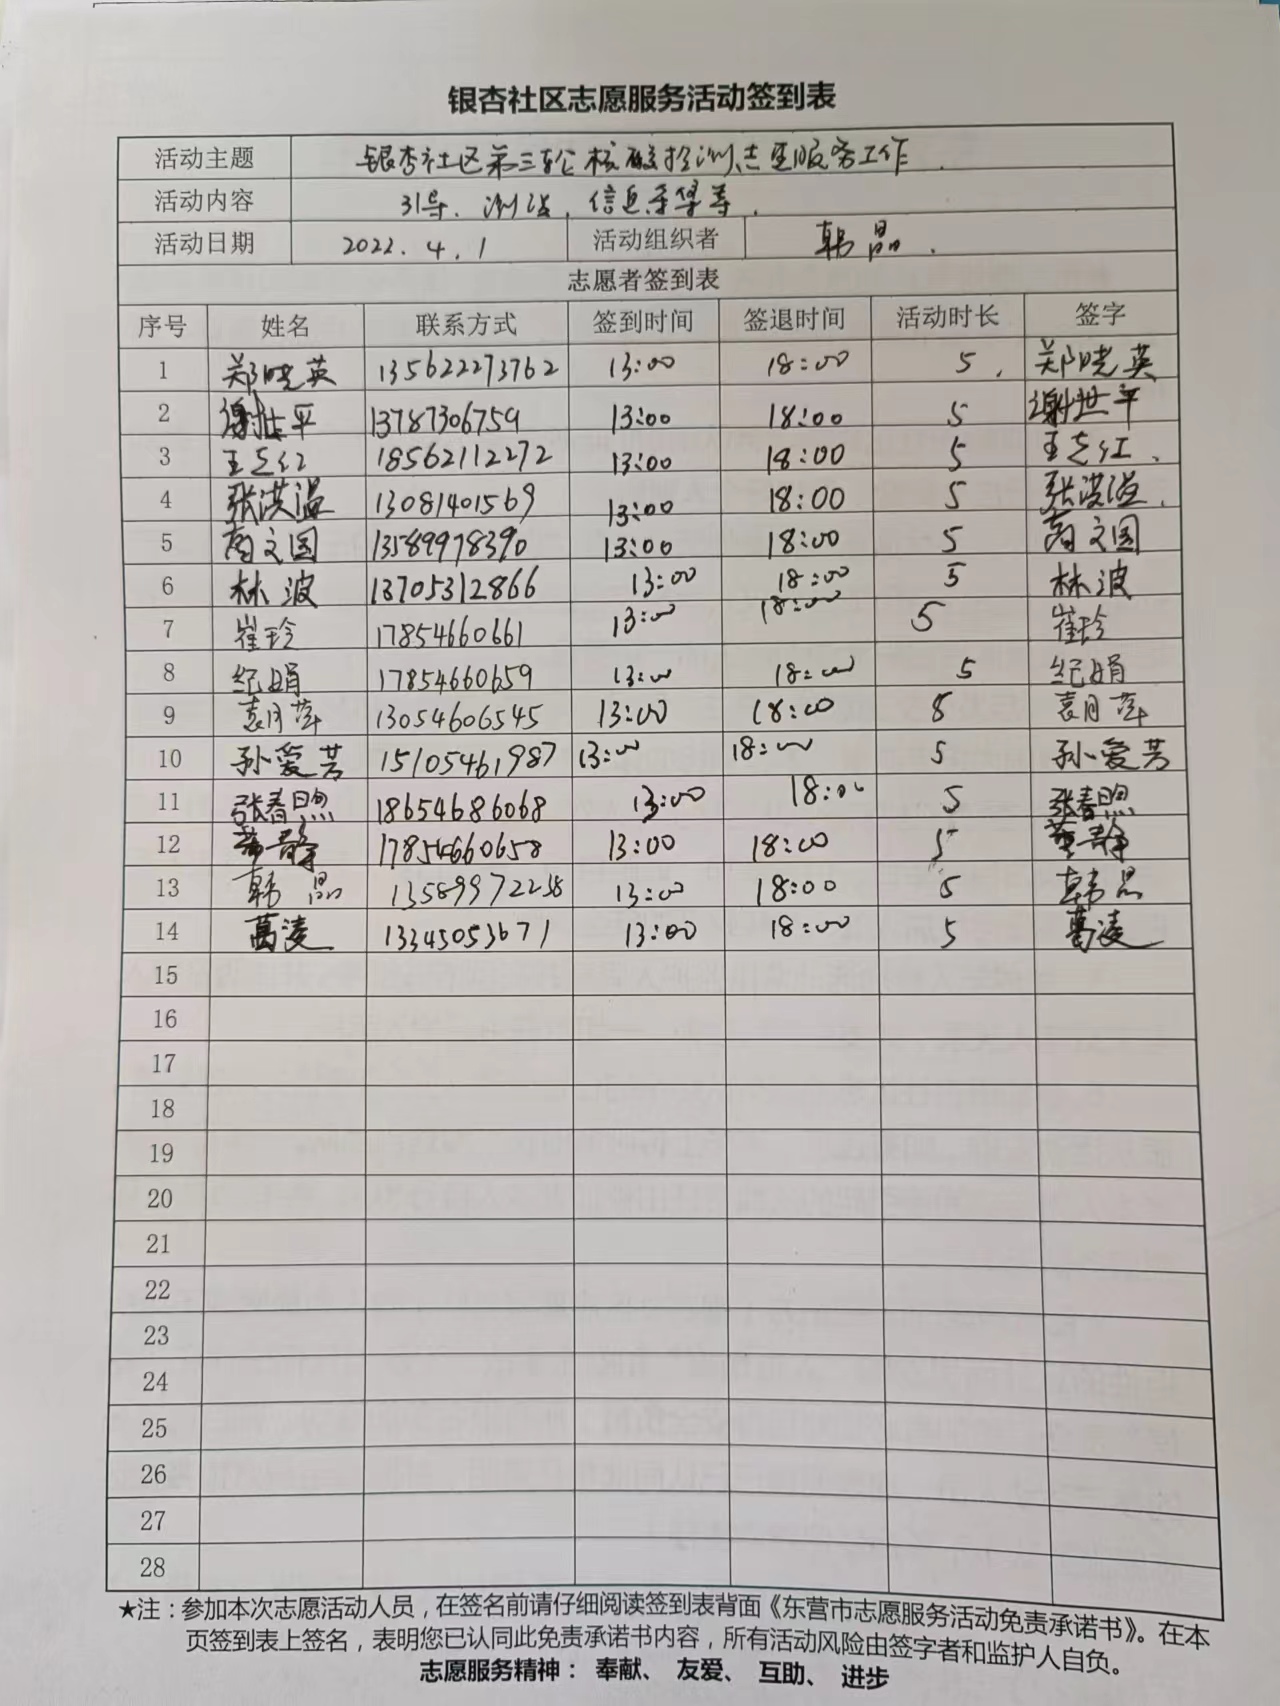 银杏社区志愿服务活动签到表
活动主题 银杏社区第三轮核酸检测志愿服务工作.
活动内容 引导、测温、信息采集等.
活动日期 2022.4.1 活动组织者 韩晶.
志愿者签到表
序号 姓名 联系方式 签到时间 签退时间 活动时长 签字
1 郑晓英 135622273762 13:00 18:00 5. 郑晓英
2 谢世平 13787306759 13:00 18:00 5 谢世平
3 王志红 18562112272 13:00 18:00 5 王志红、
4 张洪温 13081401569 13:00 18:00 5 张洪温.
5 商文国 13589978390 13:00 18:00 5 商文国
6 林波 13705312866 13:00 18:00 5 林波
7 崔玲 17854660661 13:00 18:00 5 崔玲
8 纪娟 17854660659 13:00 18:00 5 纪娟
9 袁月萍 13054606545 13:00 18:00 8 袁月萍
10 孙爱芳 15105461987 13:00 18:00 5 孙爱芳
11 张春煦 18654686068 13:00 18:00 5 张春煦
12 17854660658 13:00 18:00 5
13 韩晶 13589972238 13:00 18:00 5 韩晶
14 葛凌 13345053671 13:00 18:00 5 葛凌
15
16
17
18
19
20
21
22
23
24
25
26
27
28
★注：参加本次志愿活动人员，在签名前请仔细阅读签到表背面《东营市志愿服务活动免责承诺书》。在本
页签到表上签名，表明您已认同此免责承诺书内容，所有活动风险由签字者和监护人自负。
志愿服务精神： 奉献、 友爱、 互助、 进步